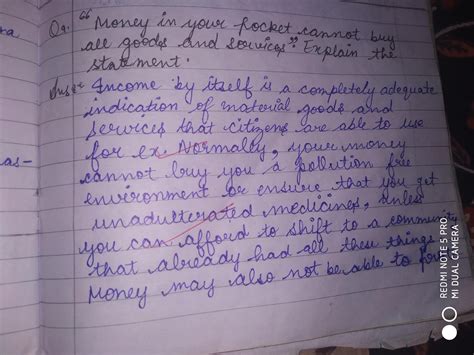 Q. "Money in your pocket cannot buy
all goods and services". Explain the
statement.
Ans: Income by itself is a completely adequate
indication of material goods and
services that citizens are able to use
for ex. Normally, your money
cannot buy you a pollution free
environment or ensure that you get
unadulterated medicines, unless
you can afford to shift to a community
that already had all these things
Money may also not be able to
as-
REDMI NOTE 5 PRO
MI DUAL CAMERA